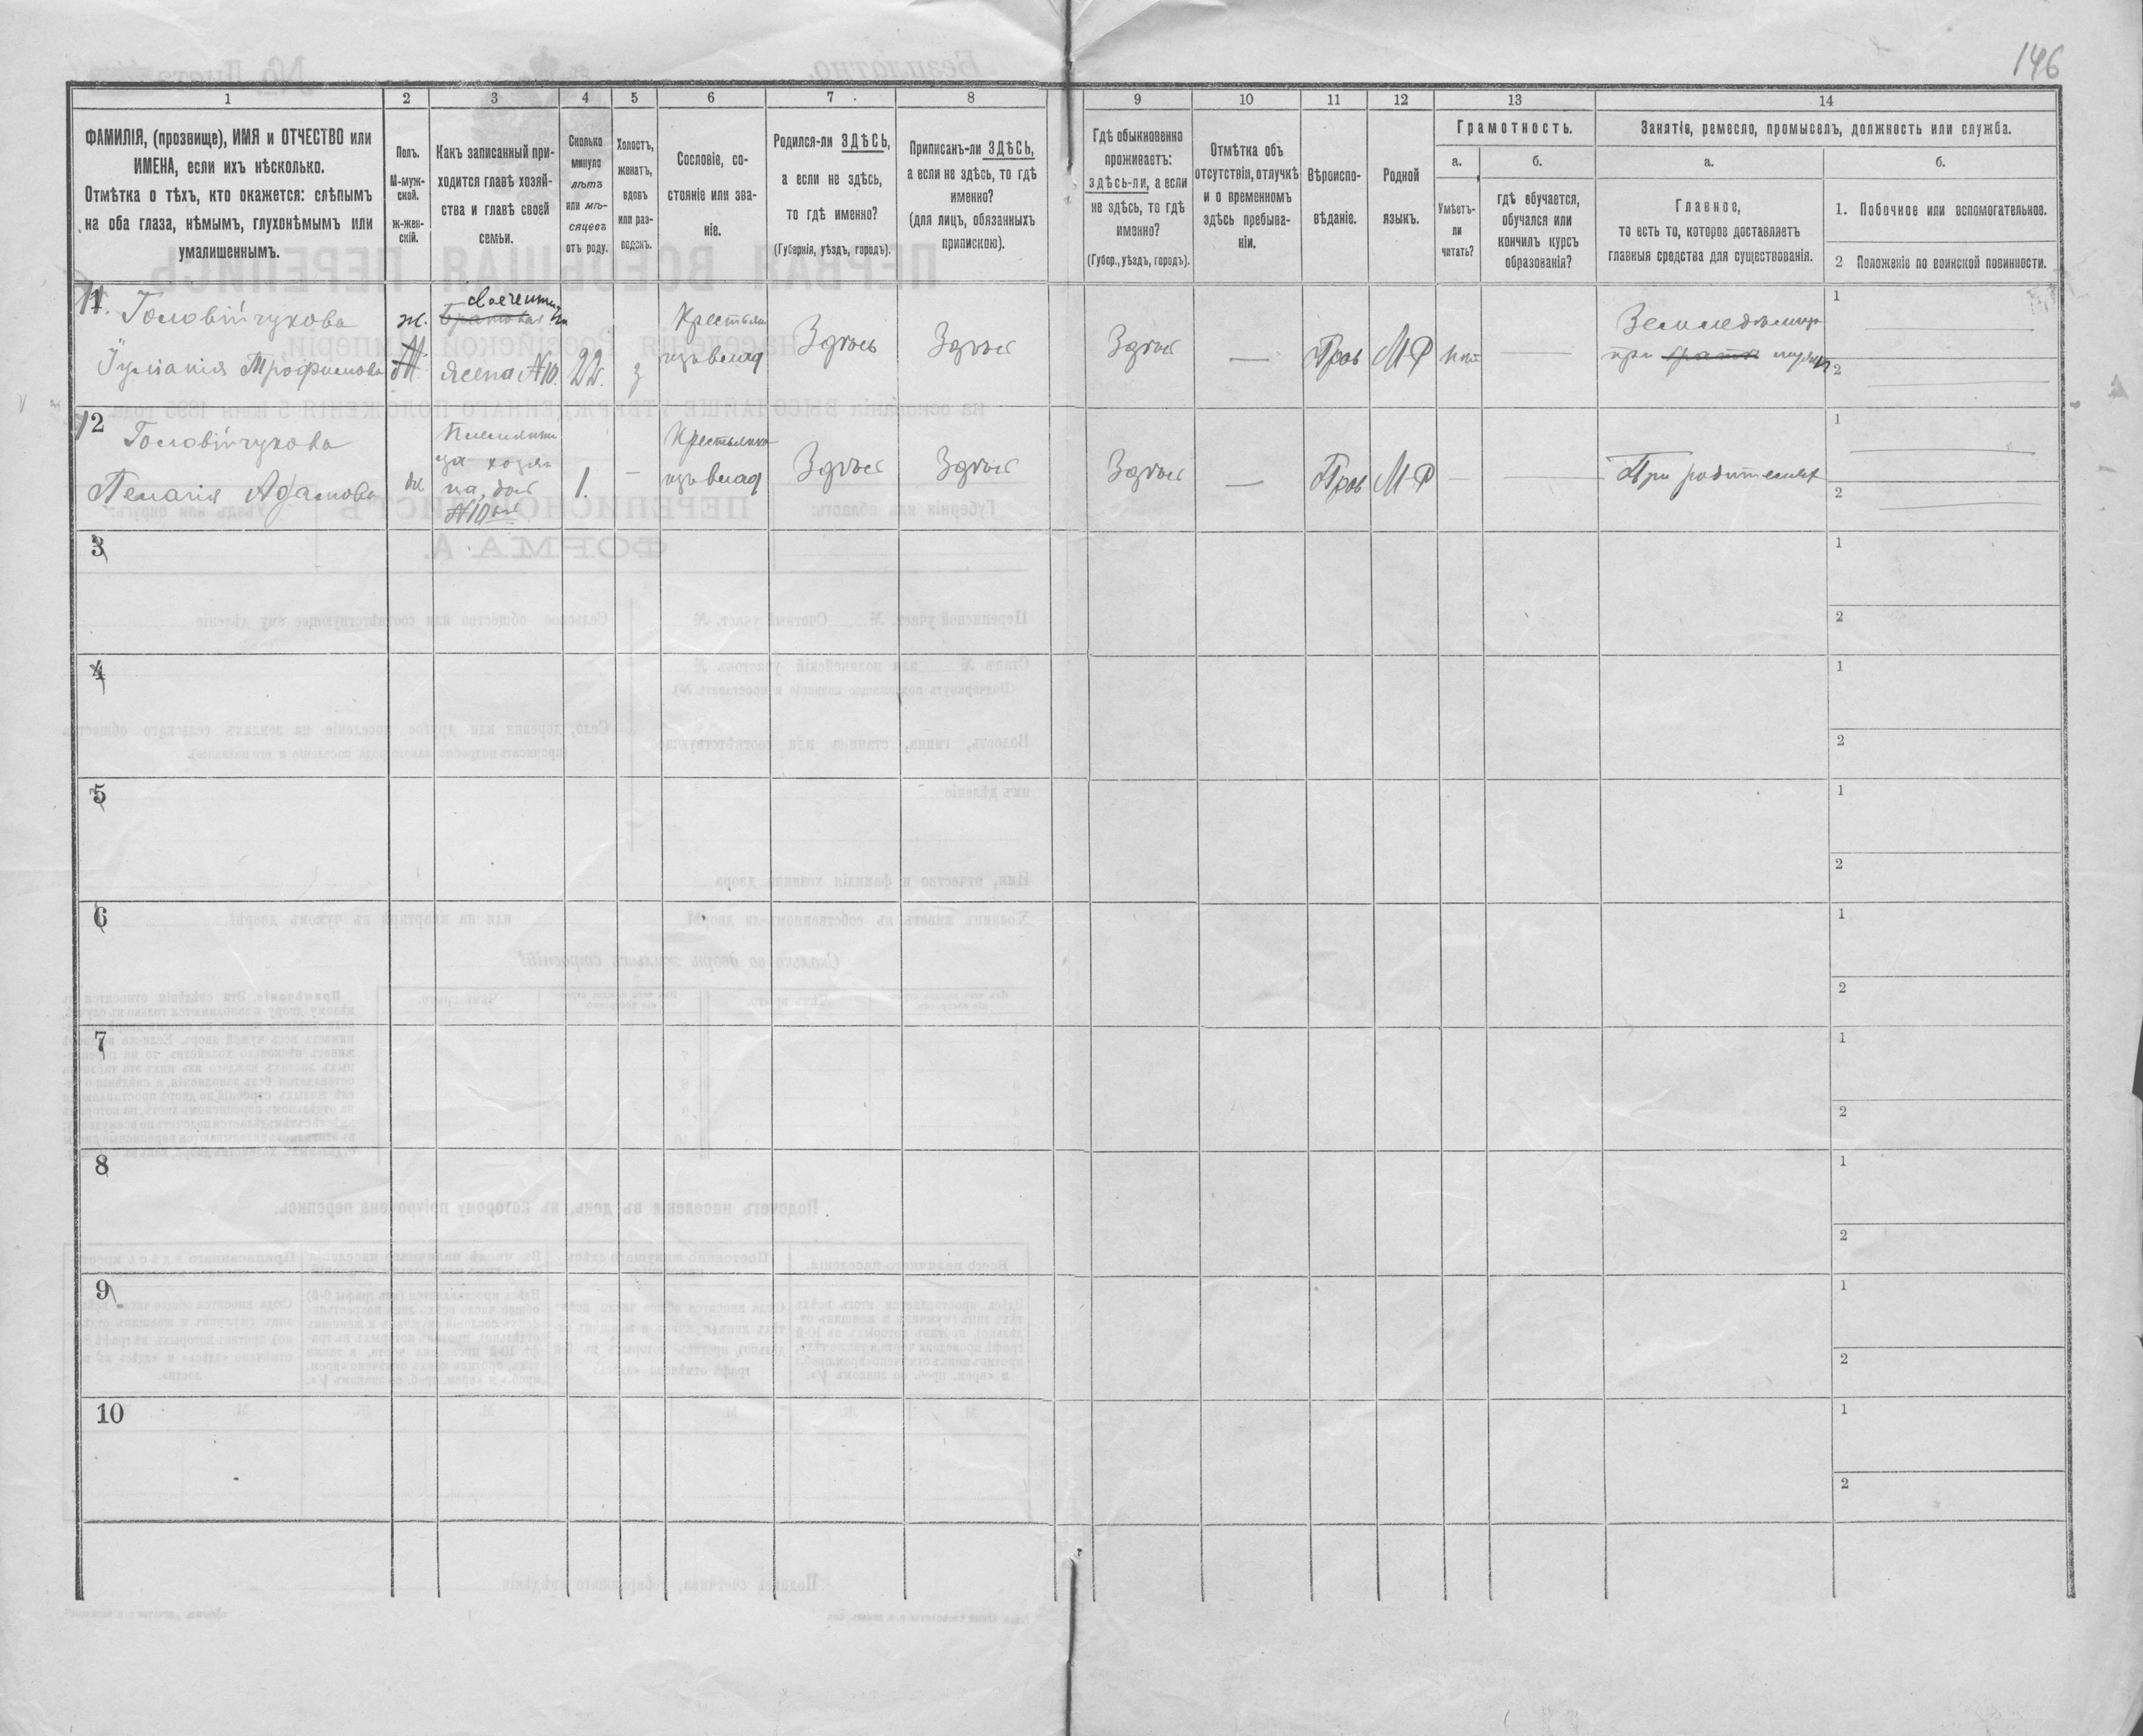 146
1 2 3 4 5 6 7 8 9 10 11 12 13 14
ФАМИЛІЯ, (прозвище), ИМЯ и ОТЧЕСТВО или
ИМЕНА, если ихъ нѣсколько.
Отмѣтка о тѣхъ, кто окажется: слѣпымъ
на оба глаза, нѣмымъ, глухонѣмымъ или
умалишеннымъ.
Полъ.
М-муж-
ской.
ж-жен-
скій.
Какъ записанный при-
ходится главѣ хозяй-
ства и главѣ своей
семьи.
Сколько
минуло
лѣтъ
или мѣ-
сяцевъ
отъ роду.
Холостъ,
женатъ,
вдовъ
или раз-
веденъ.
Сословіе, со-
стояніе или зва-
ніе.
Родился-ли ЗДѢСЬ,
а если не здѣсь,
то гдѣ именно?
(Губернія, уѣздъ, городъ).
Приписанъ-ли ЗДѢСЬ,
а если не здѣсь, то гдѣ
именно?
(для лицъ, обязанныхъ
припискою).
Гдѣ обыкновенно
проживаетъ:
здѣсь-ли, а если
не здѣсь, то гдѣ
именно?
(Губер., уѣздъ, городъ).
Отмѣтка объ
отсутствіи, отлучкѣ
и о временномъ
здѣсь пребыва-
ніи.
Вѣроиспо-
вѣданіе.
Родной
языкъ.
Грамотность.
а.
Умѣетъ-
ли
читать?
б.
гдѣ обучается,
обучался или
кончилъ курсъ
образованія?
Занятіе, ремесло, промыселъ, должность или служба.
а.
Главное,
то есть то, которое доставляетъ
главныя средства для существованія.
б.
1. Побочное или вспомогательное.
2 Положеніе по воинской повинности.
11.
Головійчукова
Іуліанія Трофимова
ж.
М
Братовая
жена №10.
22.
з
Крестьян
изъ влад
Здѣсь
Здѣсь
Здѣсь
—
Прав
МР
нѣт
—
Земледѣлица
при мужѣ
1
2
12
Головійчукова
Пелагія Адамова
ж
Племянни
ца хозяи
на, доч
№10
1.
—
Крестьянка
изъ влад
Здѣсь
Здѣсь
Здѣсь
—
Прав
МР
—
—
При родителях
1
2
3
1
2
4
1
2
5
1
2
6
1
2
7
1
2
8
1
2
9
1
2
10
1
2